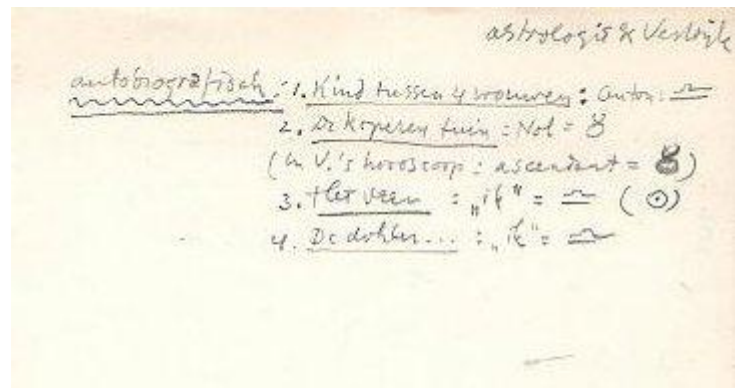 astrologie & Vestdijk
autobiografisch: 1. Kind tussen 4 vrouwen: Anton: ♎
2. De koperen tuin: Nol = ♉
(in V.'s horoscoop: ascendant = ♉)
3. Het veer : „ik" = ♎ (☉)
4. De dokter... : „ik": ♎